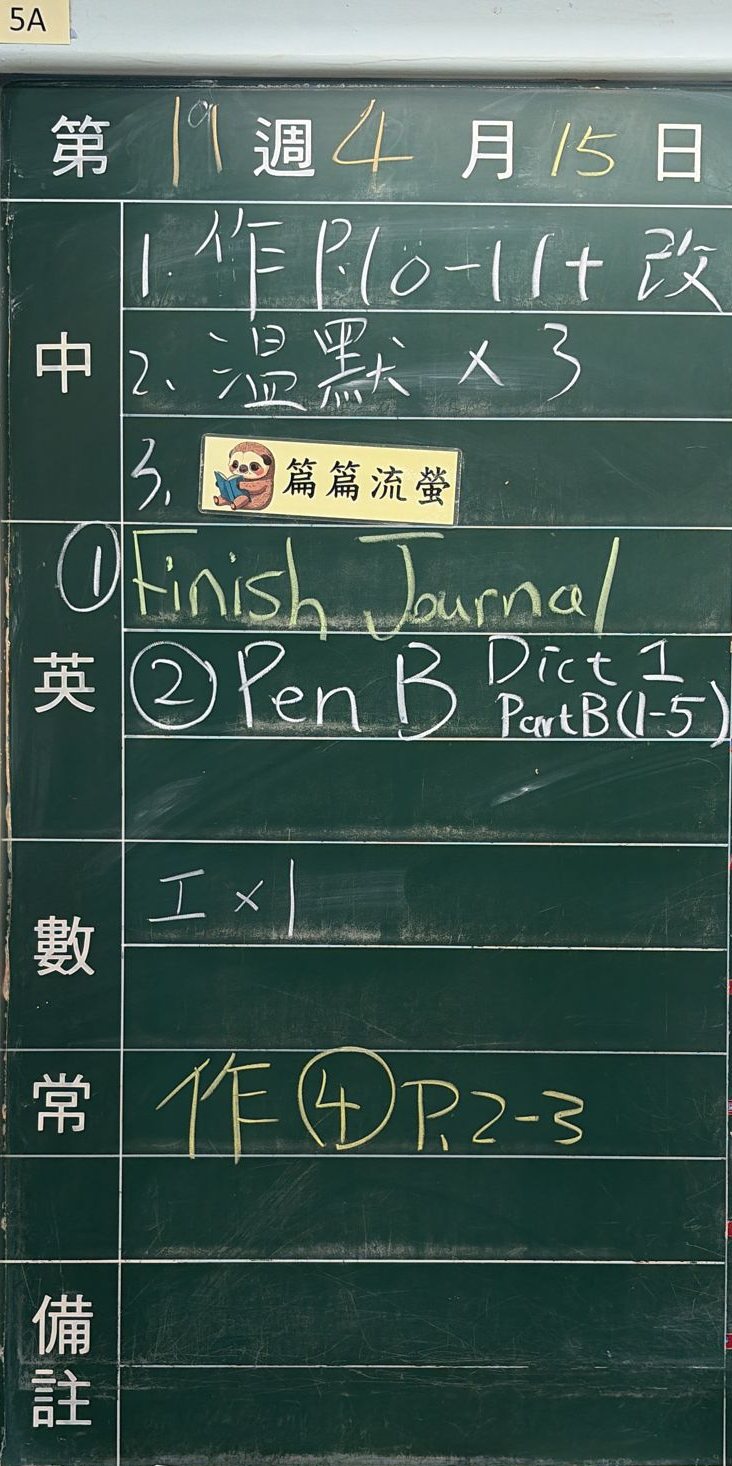 5A
第 19 週 4 月 15 日
中
1. 作 P.10-11+ 改
2、 溫默 × 3
3、 篇篇流螢
英
① Finish Journal
② Pen B Dict 1
Part B (1-5)
數
工 × 1
常
作 ④ P.2-3
備註